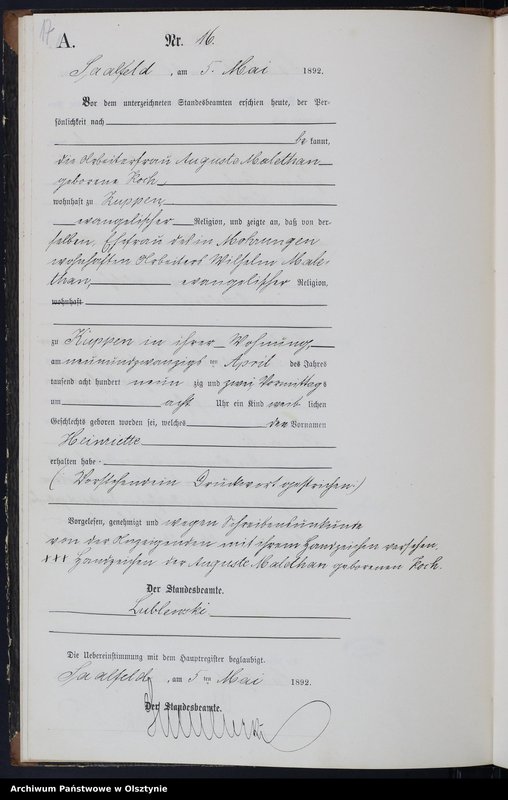 17
A. Nr. 16.
Saalfeld, am 5. Mai 1892.
Vor dem unterzeichneten Standesbeamten erschien heute, der Per-
sönlichkeit nach
be kannt,
die Arbeiterfrau Auguste Malethan
geborene Koch,
wohnhaft zu Kuppen,
evangelischer Religion, und zeigte an, daß von der-
selben, Ehefrau des in Mohrungen
wohnhaften Arbeiters Wilhelm Male-
than, evangelischer Religion,
wohnhaft
zu Kuppen in ihrer Wohnung,
am neunundzwanzigsten April des Jahres
tausend acht hundert neun zig und zwei Vormittags
um acht Uhr ein Kind weib lichen
Geschlechts geboren worden sei, welches den Vornamen
Henriette
erhalten habe.
(Vorstehend ein Druckwort gestrichen.)
Vorgelesen, genehmigt und wegen Schreibensunkunde
von der Anzeigenden mit ihrem Handzeichen versehen.
+++ Handzeichen der Auguste Malethan geborenen Koch.
Der Standesbeamte.
Lublewski
Die Uebereinstimmung mit dem Hauptregister beglaubigt.
Saalfeld, am 5 ten Mai 1892.
Der Standesbeamte.
Archiwum Państwowe w Olsztynie